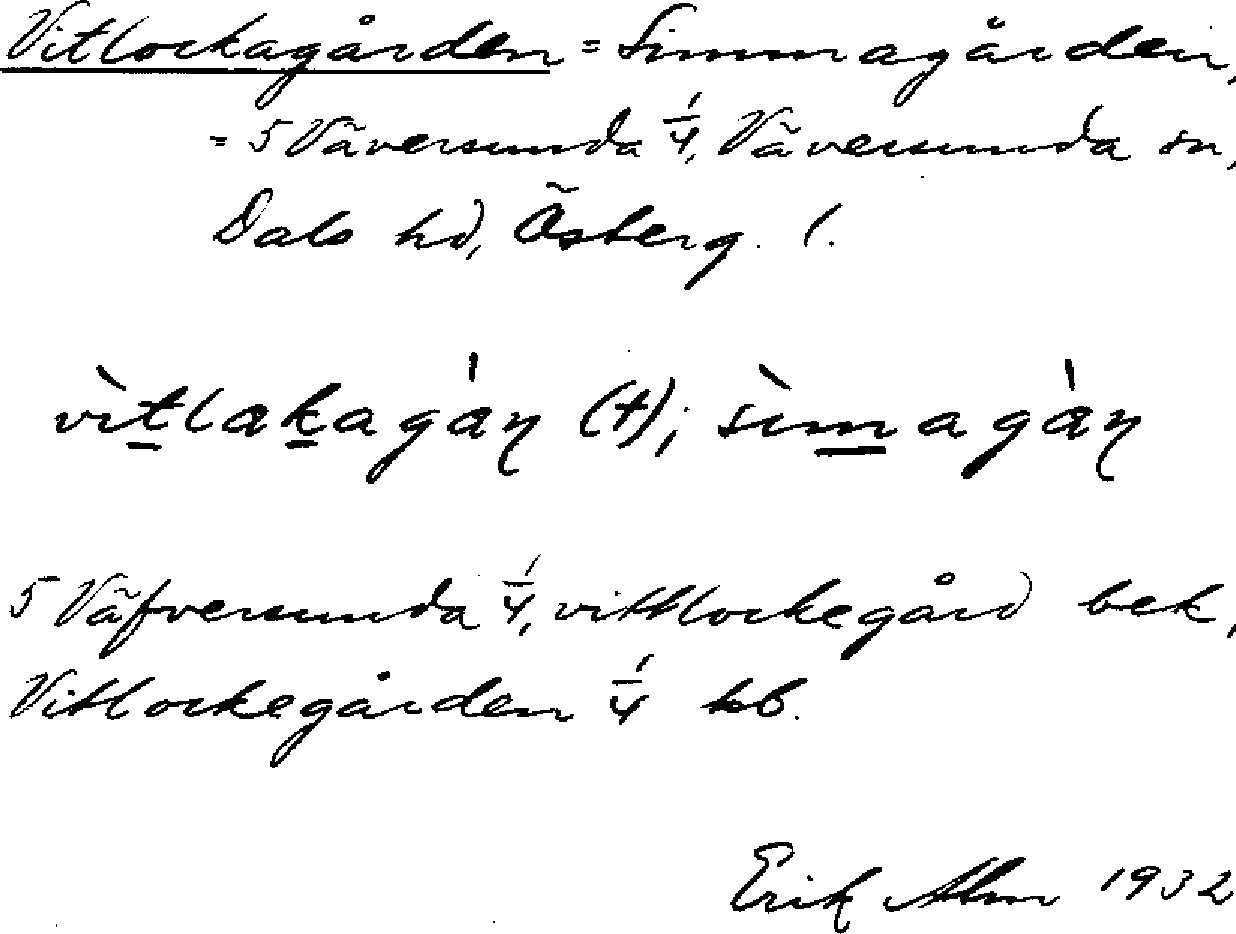 Vitlockagården = Simmagården,
= 5 Väversunda 1/4, Väversunda sn,
Dals hd, Österg. l.
vìt̲lak̲agáɳ (†); sìm̲agáɳ
5 Väfversunda 1/4, vittlockegård bek,
Vitlockegården 1/4 kb.
Erik Alm 1932